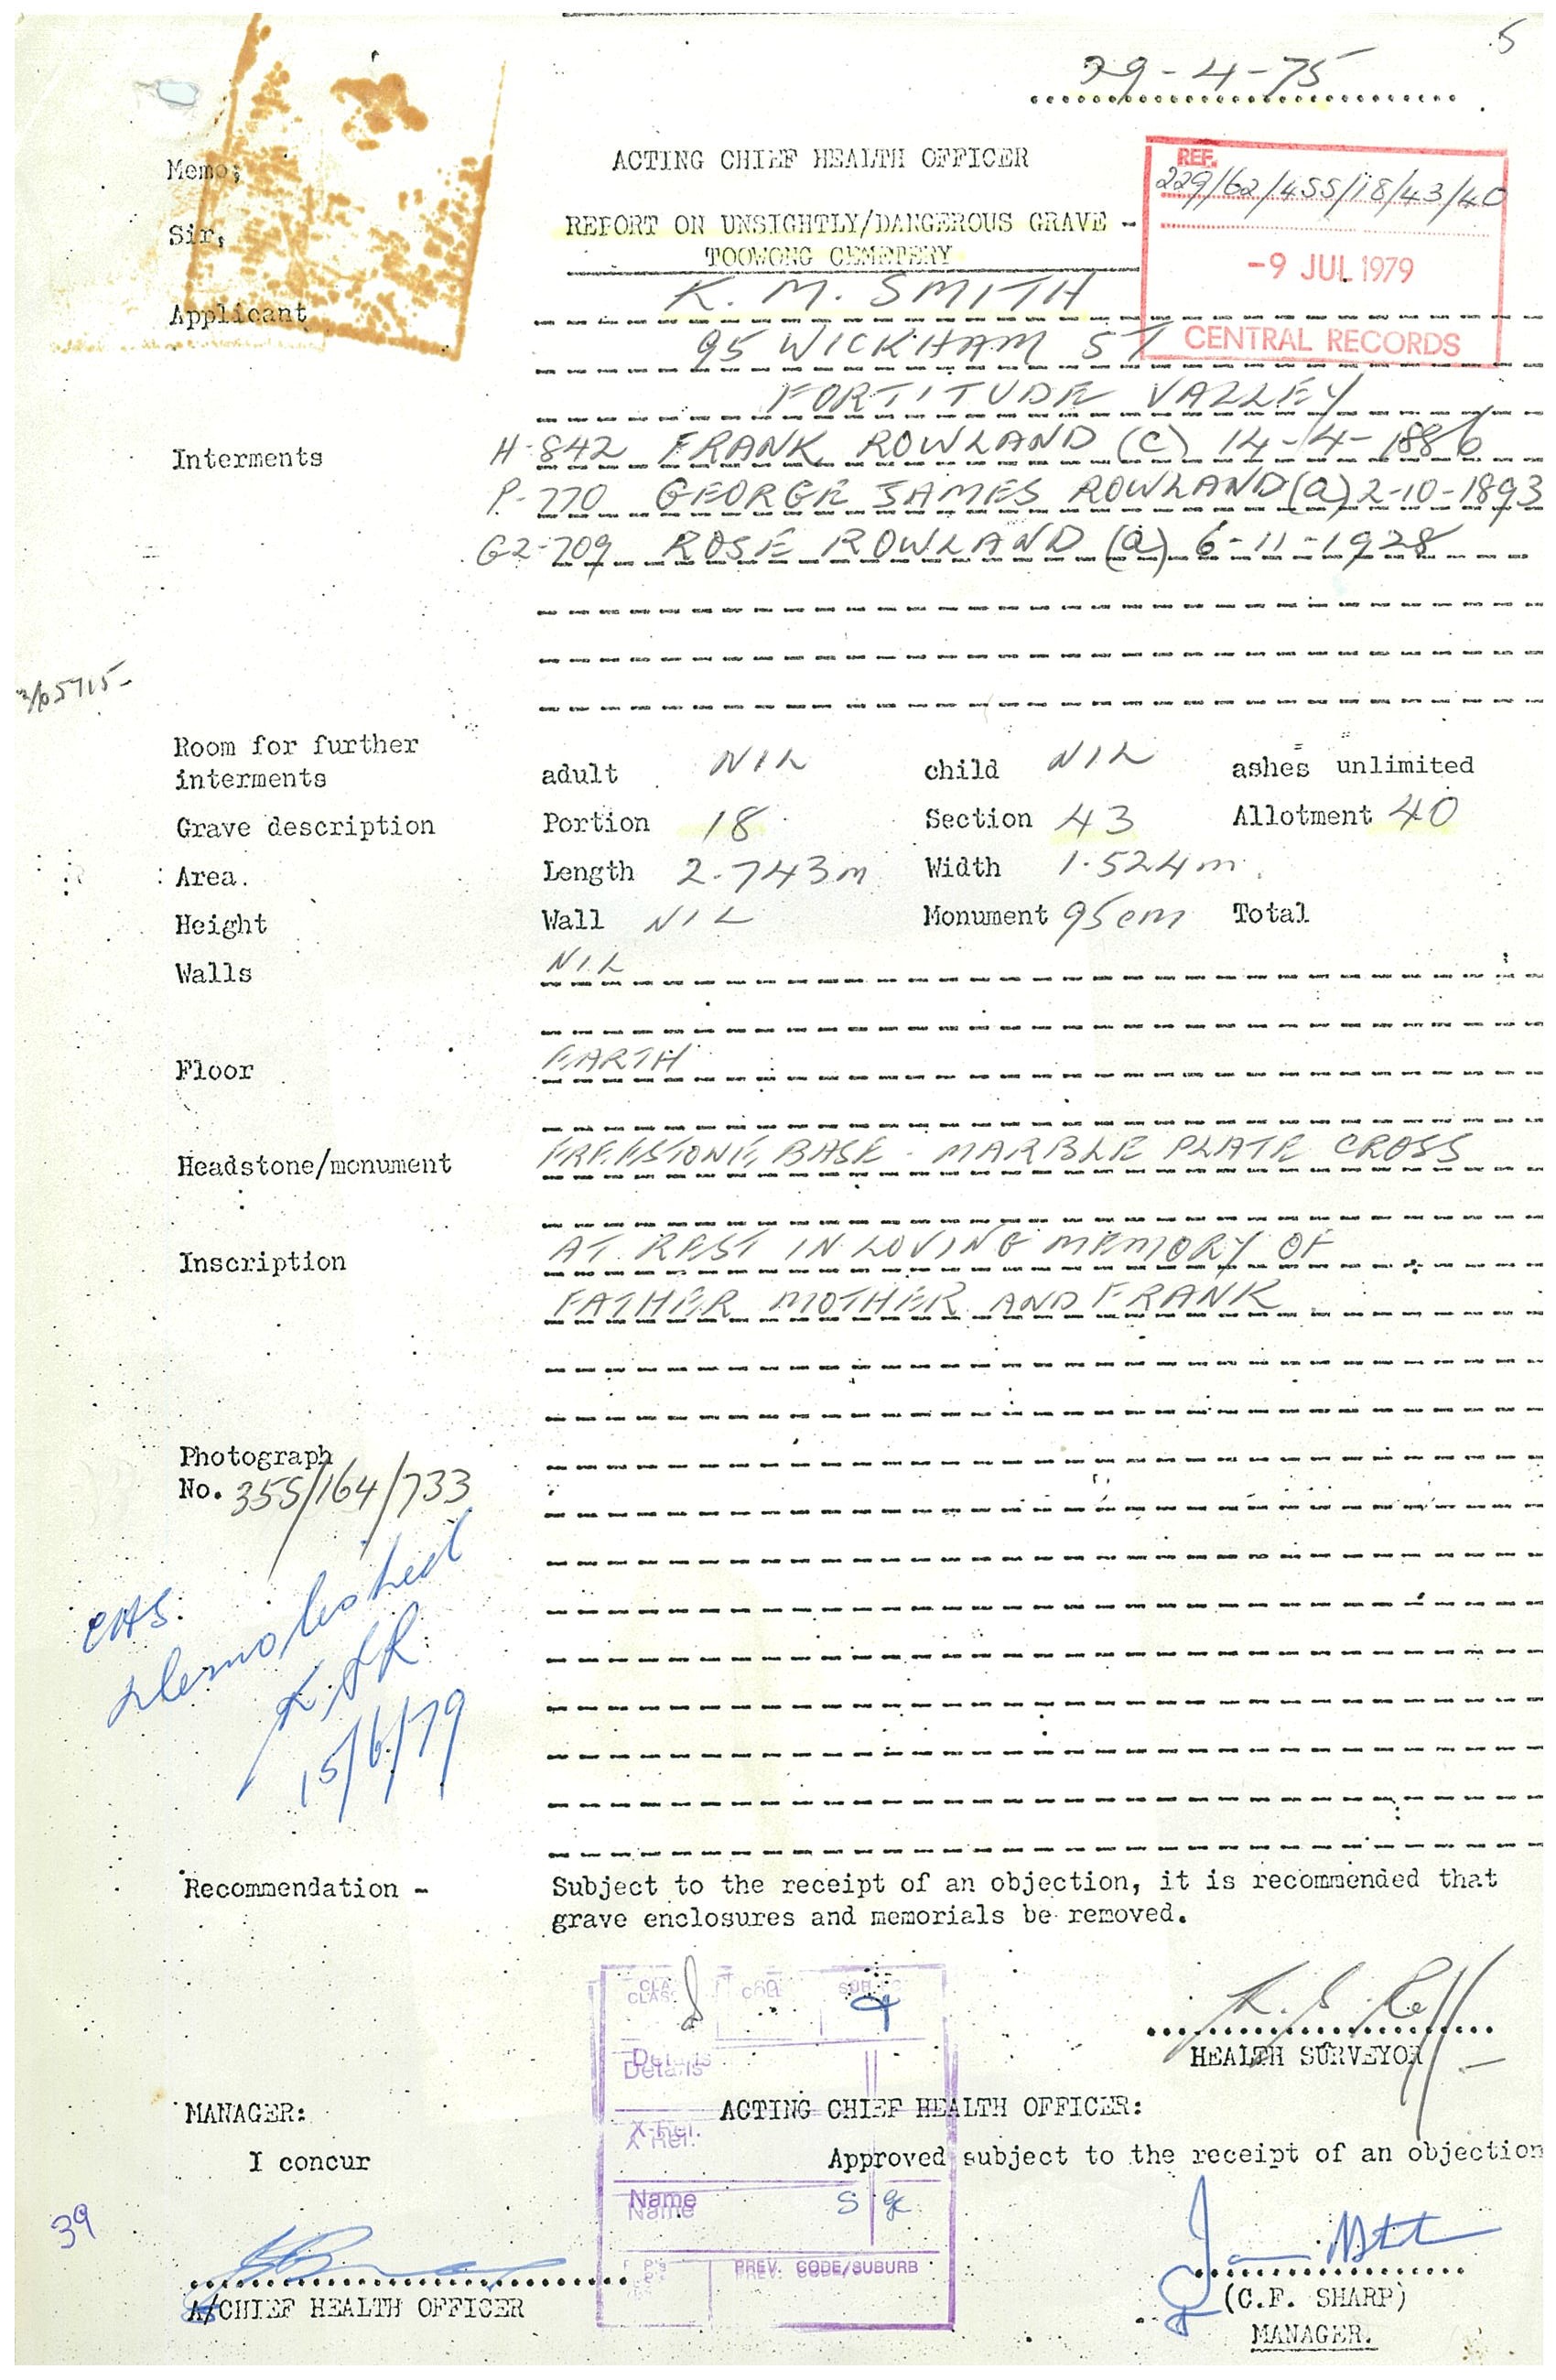 5
29-4-75
ACTING CHIEF HEALTH OFFICER
Memo;
REF.
229/62/455/18/43/40
REPORT ON UNSIGHTLY/DANGEROUS GRAVE -
Sir,
TOOWONG CEMETERY
-9 JUL 1979
K. M. SMITH
Applicant
95 WICKHAM ST
CENTRAL RECORDS
FORTITUDE VALLEY
Interments H-842 FRANK ROWLAND (C) 14-4-1886
P-770 GEORGE JAMES ROWLAND (a) 2-10-1893
G2-709 ROSE ROWLAND (a) 6-11-1928
Room for further
interments adult NIL child NIL ashes unlimited
Grave description Portion 18 Section 43 Allotment 40
Area. Length 2.743m Width 1.524m.
Height Wall NIL Monument 95cm Total
Walls NIL
Floor EARTH
Headstone/monument FREESTONE BASE - MARBLE PLATE CROSS
Inscription AT REST IN LOVING MEMORY OF
FATHER MOTHER AND FRANK
Photograph
No. 355/164/733
Demolished
15/6/79
Recommendation - Subject to the receipt of an objection, it is recommended that
grave enclosures and memorials be removed.
CLASS.
Details
HEALTH SURVEYOR
MANAGER: ACTING CHIEF HEALTH OFFICER:
X-Ref.
I concur Approved subject to the receipt of an objection
Name
39
PREV. CODE/SUBURB
A/CHIEF HEALTH OFFICER
(C.F. SHARP)
MANAGER.